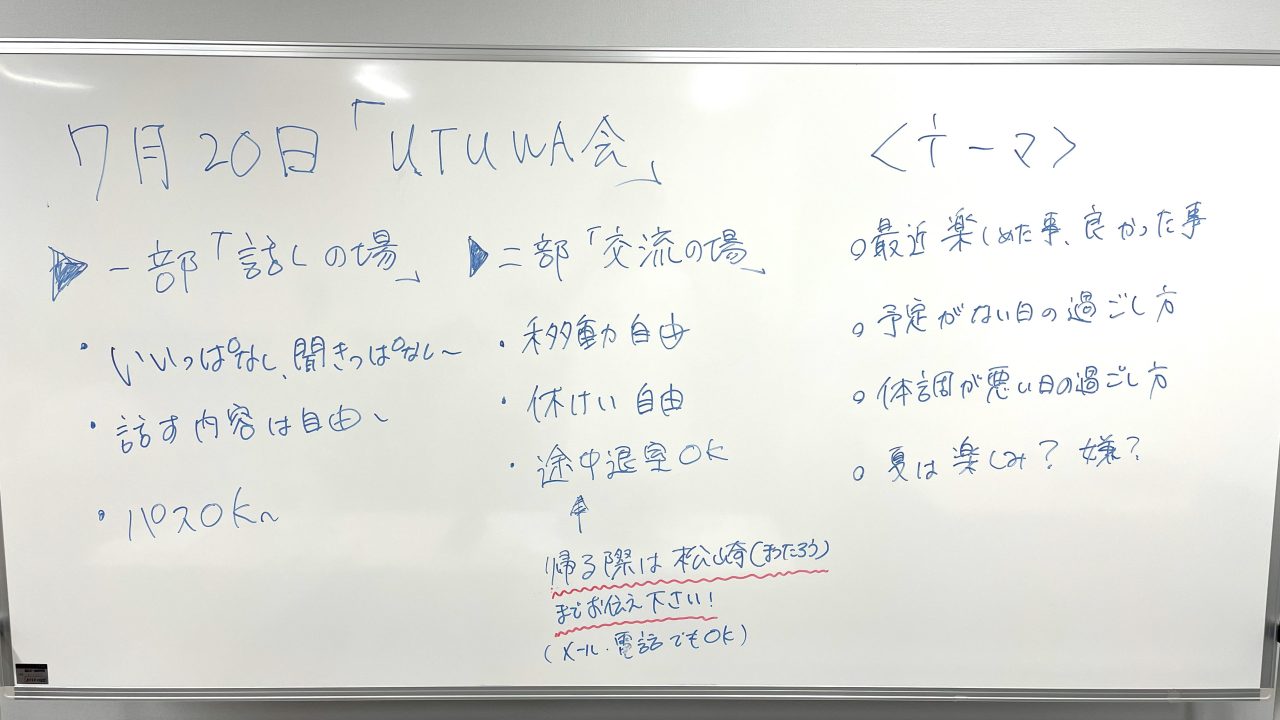 7月20日「UTUWA会」
▶一部「話しの場」
・いいっぱなし、聞きっぱなし～
・話す内容は自由～
・パスOK～
▶二部「交流の場」
・移動自由
・休けい自由
・途中退室OK
↑
帰る際は松崎(まつたろう)
までお伝え下さい!
(メール・電話でもOK)
<テーマ>
○最近楽しめた事、良かった事
○予定がない日の過ごし方
○体調が悪い日の過ごし方
○夏は楽しみ?嫌?